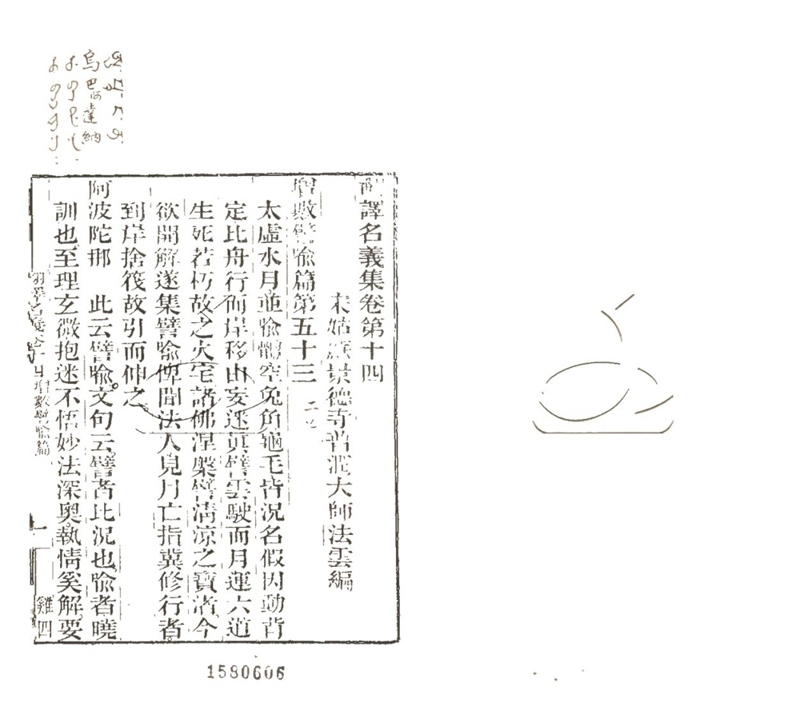 翻譯名義集卷第十四
宋姑蘇景德寺普潤大師法雲編
增數譬喻篇第五十三
太虛水月並喻體空兔角龜毛皆況名假因動背
定比舟行而岸移由妄迷真譬雲駛而月運六道
生死若朽故之火宅諸佛涅槃譬清凉之寶渚今
欲開解遂集譬喻俾聞法人見月亡指冀修行者
到岸捨筏故引而伸之
阿波陀那　此云譬喻文句云譬者比況也喻者曉
訓也至理玄微抱迷不悟妙法深奧執情奚解要
翻譯名義卷十四增數譬喻篇
一
雞四
烏巴達納
1580606